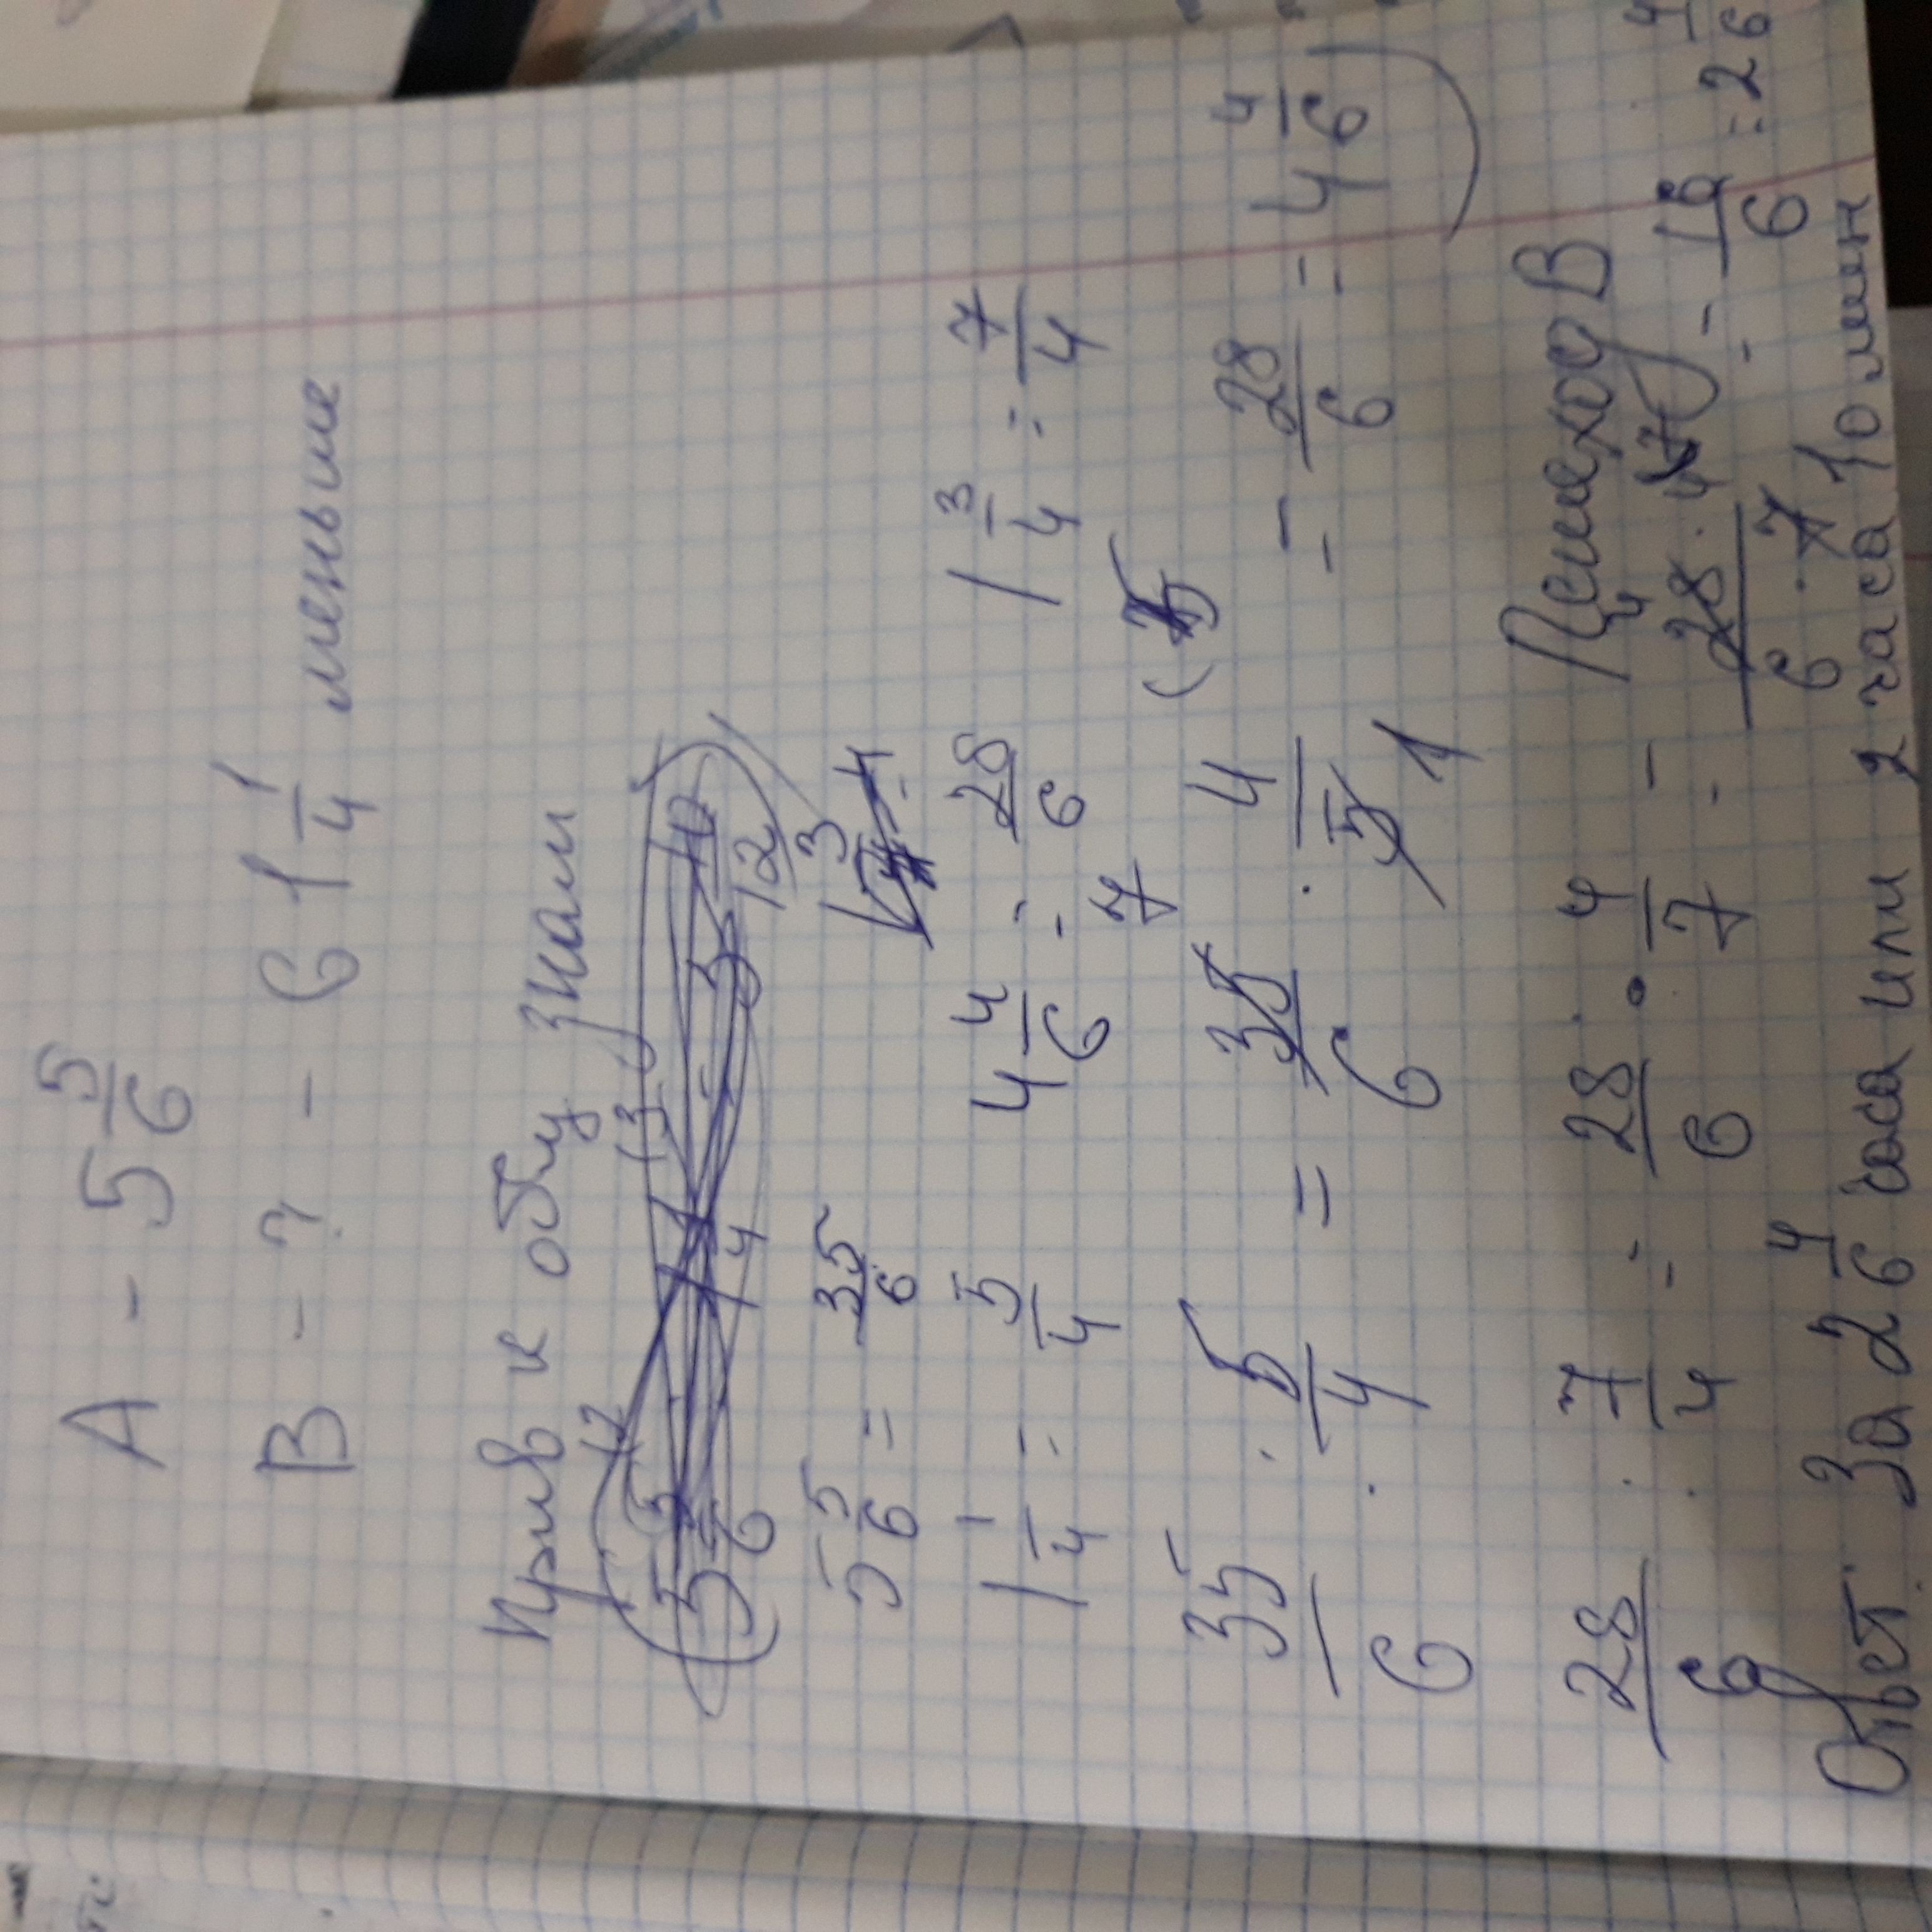 А - 5 5/6
В - ? - в 1 1/4 меньше
Прив к общ знам
5 5/6 = 35/6
1 1/4 = 5/4 4 4/6 = 28/6 1 3/4 = 7/4
35/6 : 5/4 = 35/6 · 4/5 = 28/6 = 4 4/6
Пешеход В
28/6 : 7/4 = 28/6 · 4/7 = 28 · 4/6 · 7 = 16/6 = 2 4/6
Ответ: За 2 4/6 часа или 2 часа 10 мин